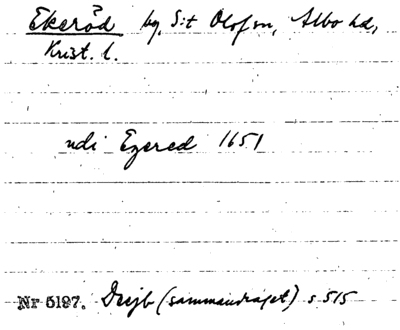 Ekeröd by, S:t Olofsn, Albo hd,
Krist. l.
udi Egered 1651
Nr 5197. Dsijb (sammandraget) s 515